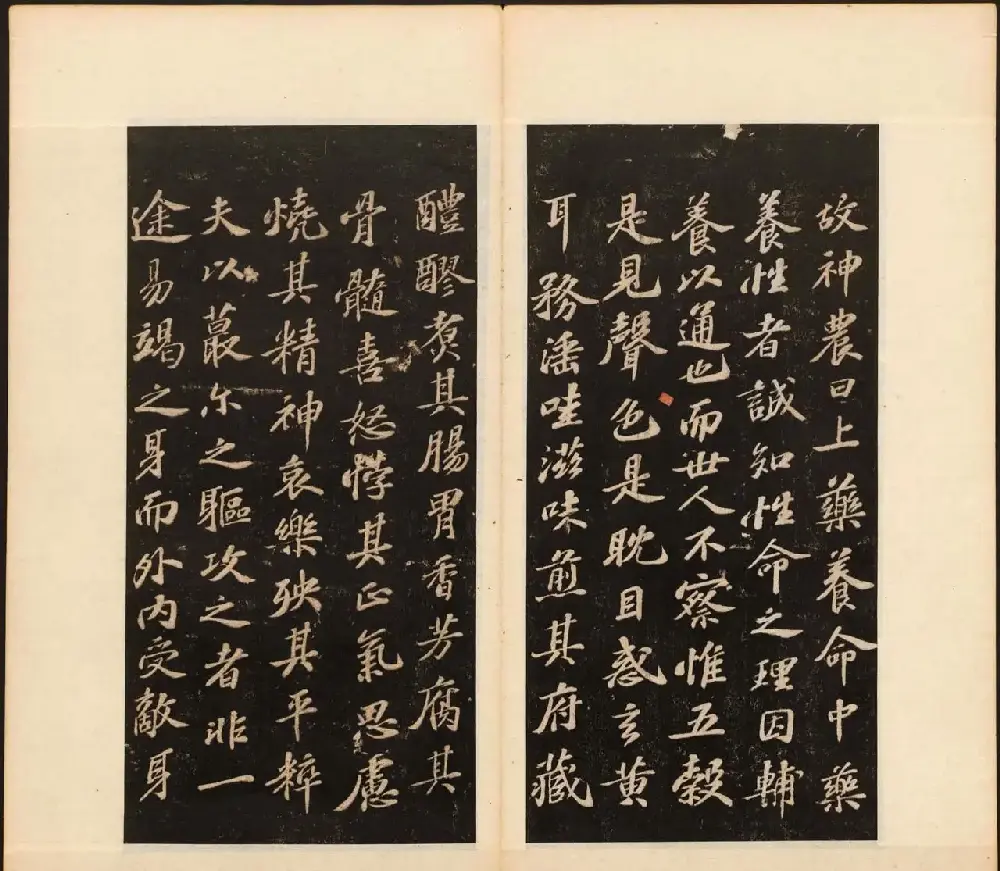 故神農曰上藥養命中藥
養性者誠知性命之理因輔
養以通也而世人不察惟五穀
是見聲色是耽目惑玄黃
耳務淫哇滋味煎其府藏
醴醪煮其腸胃香芳腐其
骨髓喜怒悖其正氣思慮
燒其精神哀樂殃其平粹
夫以蕞尔之軀攻之者非一
途易竭之身而外内受敵身